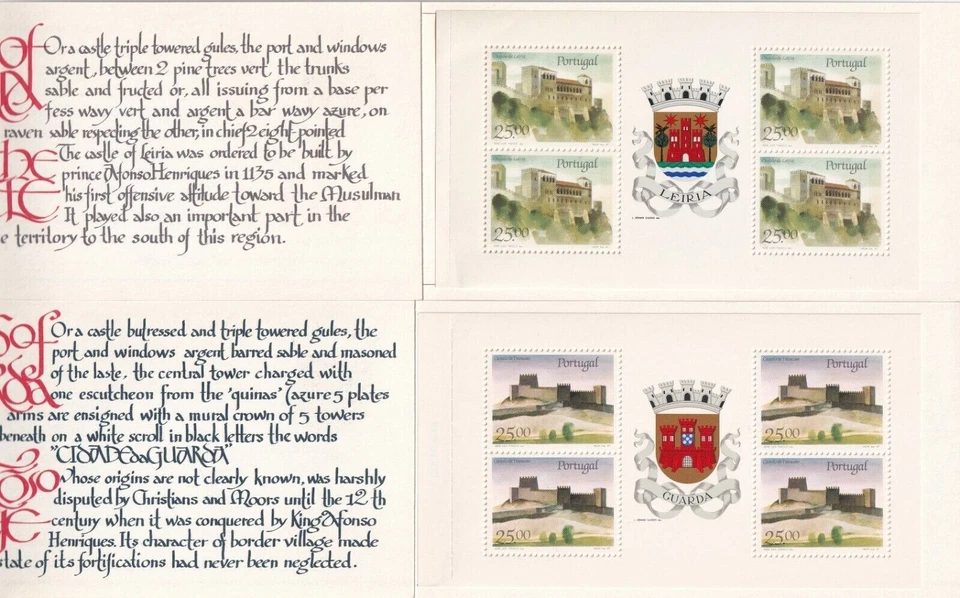 of Or a castle triple towered gules, the port and windows
argent, between 2 pine trees vert, the trunks
sable and fructed or, all issuing from a base per
fess wavy vert and argent a bar wavy azure, on
raven sable respecting the other, in chief 2 eight pointed
The castle of Leiria was ordered to be built by
prince Afonso Henriques in 1135 and marked
his first offensive attitude toward the Musulman
It played also an important part in the
e territory to the south of this region.
Castelo de Leiria
Portugal
25.00
Castelo de Leiria
Portugal
25.00
LEIRIA
Castelo de Leiria
Portugal
25.00
Castelo de Leiria
Portugal
25.00
of Or a castle butressed and triple towered gules, the
port and windows argent barred sable and masoned
of the laste, the central tower charged with
one escutcheon from the "quinas" (azure 5 plates
arms are ensigned with a mural crown of 5 towers
beneath on a white scroll in black letters the words
"CIDADE da GUARDA"
Whose origins are not clearly known, was harshly
disputed by Christians and Moors until the 12 th
century when it was conquered by King Afonso
Henriques. Its character of border village made
state of its fortifications had never been neglected.
Castelo de Trancoso
Portugal
25.00
Castelo de Trancoso
Portugal
25.00
GUARDA
Castelo de Trancoso
Portugal
25.00
Castelo de Trancoso
Portugal
25.00